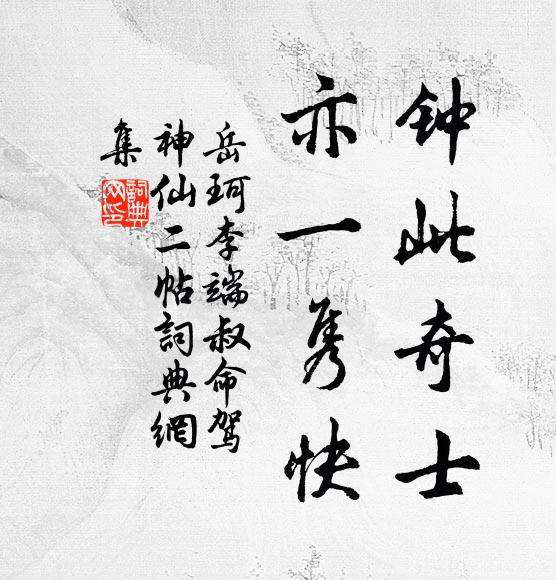 钟此奇士
亦一隽快
岳珂李端叔命驾
神仙二帖詞典網
集
詞典网印